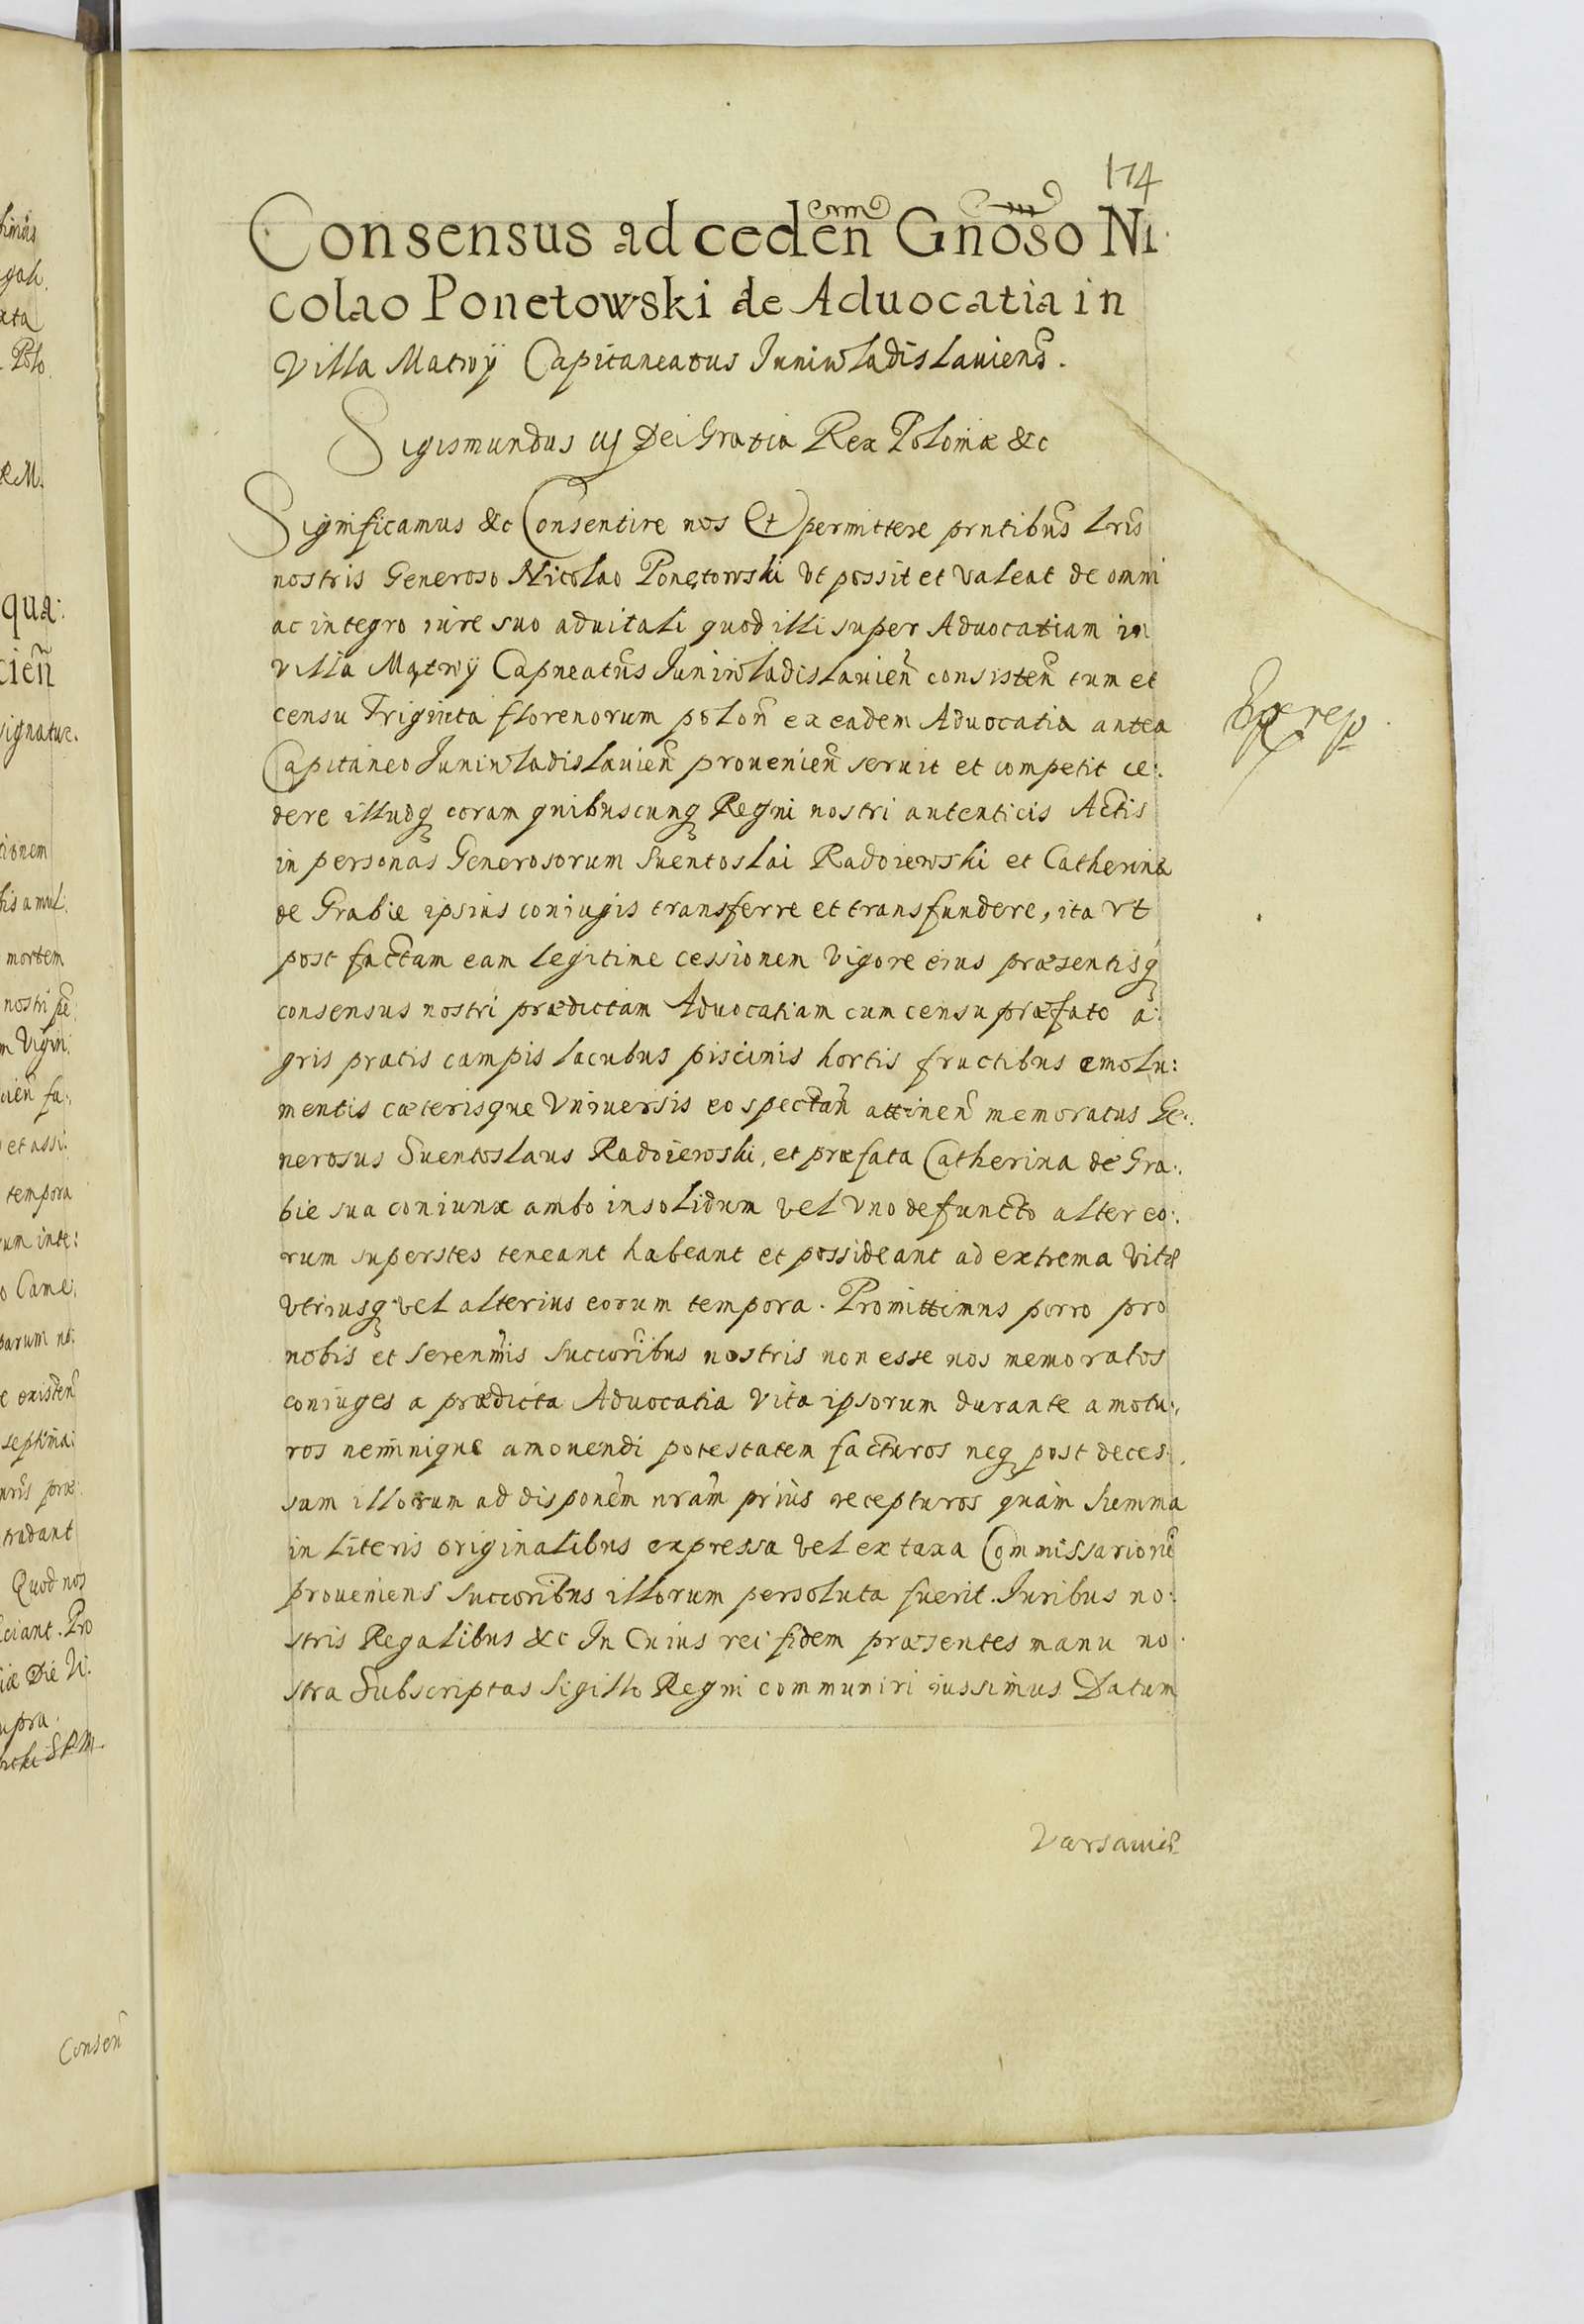 174
Consensus ad ceden̄ Gnōso Ni
colao Ponetowski de Aduocatia in
Villa Matwÿ Capitaneatus Juniwladislauien̄s.
Sigismundus iij Dei Gratia Rex Poloniæ &c
Significamus &c Consentire nos Et permittere pn̄tibus lris̄
nostris Generoso Nicolao Ponętowski Vt possit et Valeat de omni
ac integro iure suo aduitali quod illi super Aduocatiam in
Villa Mątwÿ Capneatūs Juniwladislauien̄ consisten̄ tum et
censu Triginta florenorum polon̄ ex eadem Aduocatia antea
Capitaneo Juniwladislauien̄ prouenien̄ seruit et competit ce:.
dere illudq coram quibuscunq Regni nostri autenticis Actis
in personas Generosorum Suentoslai Radoiewski et Catherina
de Grabie ipsius coniugis transferre et transfundere, ita vt
post factam eam legitime cessionem Vigore eius præsentisq́
consensus nostri prædictam Aduocatiam cum censu præfato a:
gris pratis campis lacubus piscinis hortis fructibus emolu:
mentis cæterisque Vniuersis eo spectan̄ attinen̄ memoratus Ge:.
nerosus Suentoslaus Radoiewski, et præfata Catherina de Gra:.
bie sua coniunx ambo insolidum vel Vno defuncto alter eo:.
rum superstes teneant habeant et possideant ad extrema Vitæ
Vtriusq vel alterius eorum tempora. Promittimus porro pro
nobis et Serenm̄is Succoribus nostris non esse nos memoratos
coniuges a prædicta Aduocatia Vita ipsorum durante amotu:,
ros neminique amouendi potestatem facturos neq post deces:,
sum illorum ad disponem̄ nram̄ prius recepturos quàm Summa
in literis originalibus expressa vel ex taxa Commissarior̄u
proueniens Succoribus illorum persoluta fuerit. Juribus no:
stris Regalibus &c In Cuius rei fidem præsentes manu no
stra Subscriptas Sigillo Regni communiri iussimus Datum
Varsauiæ
Consen̄